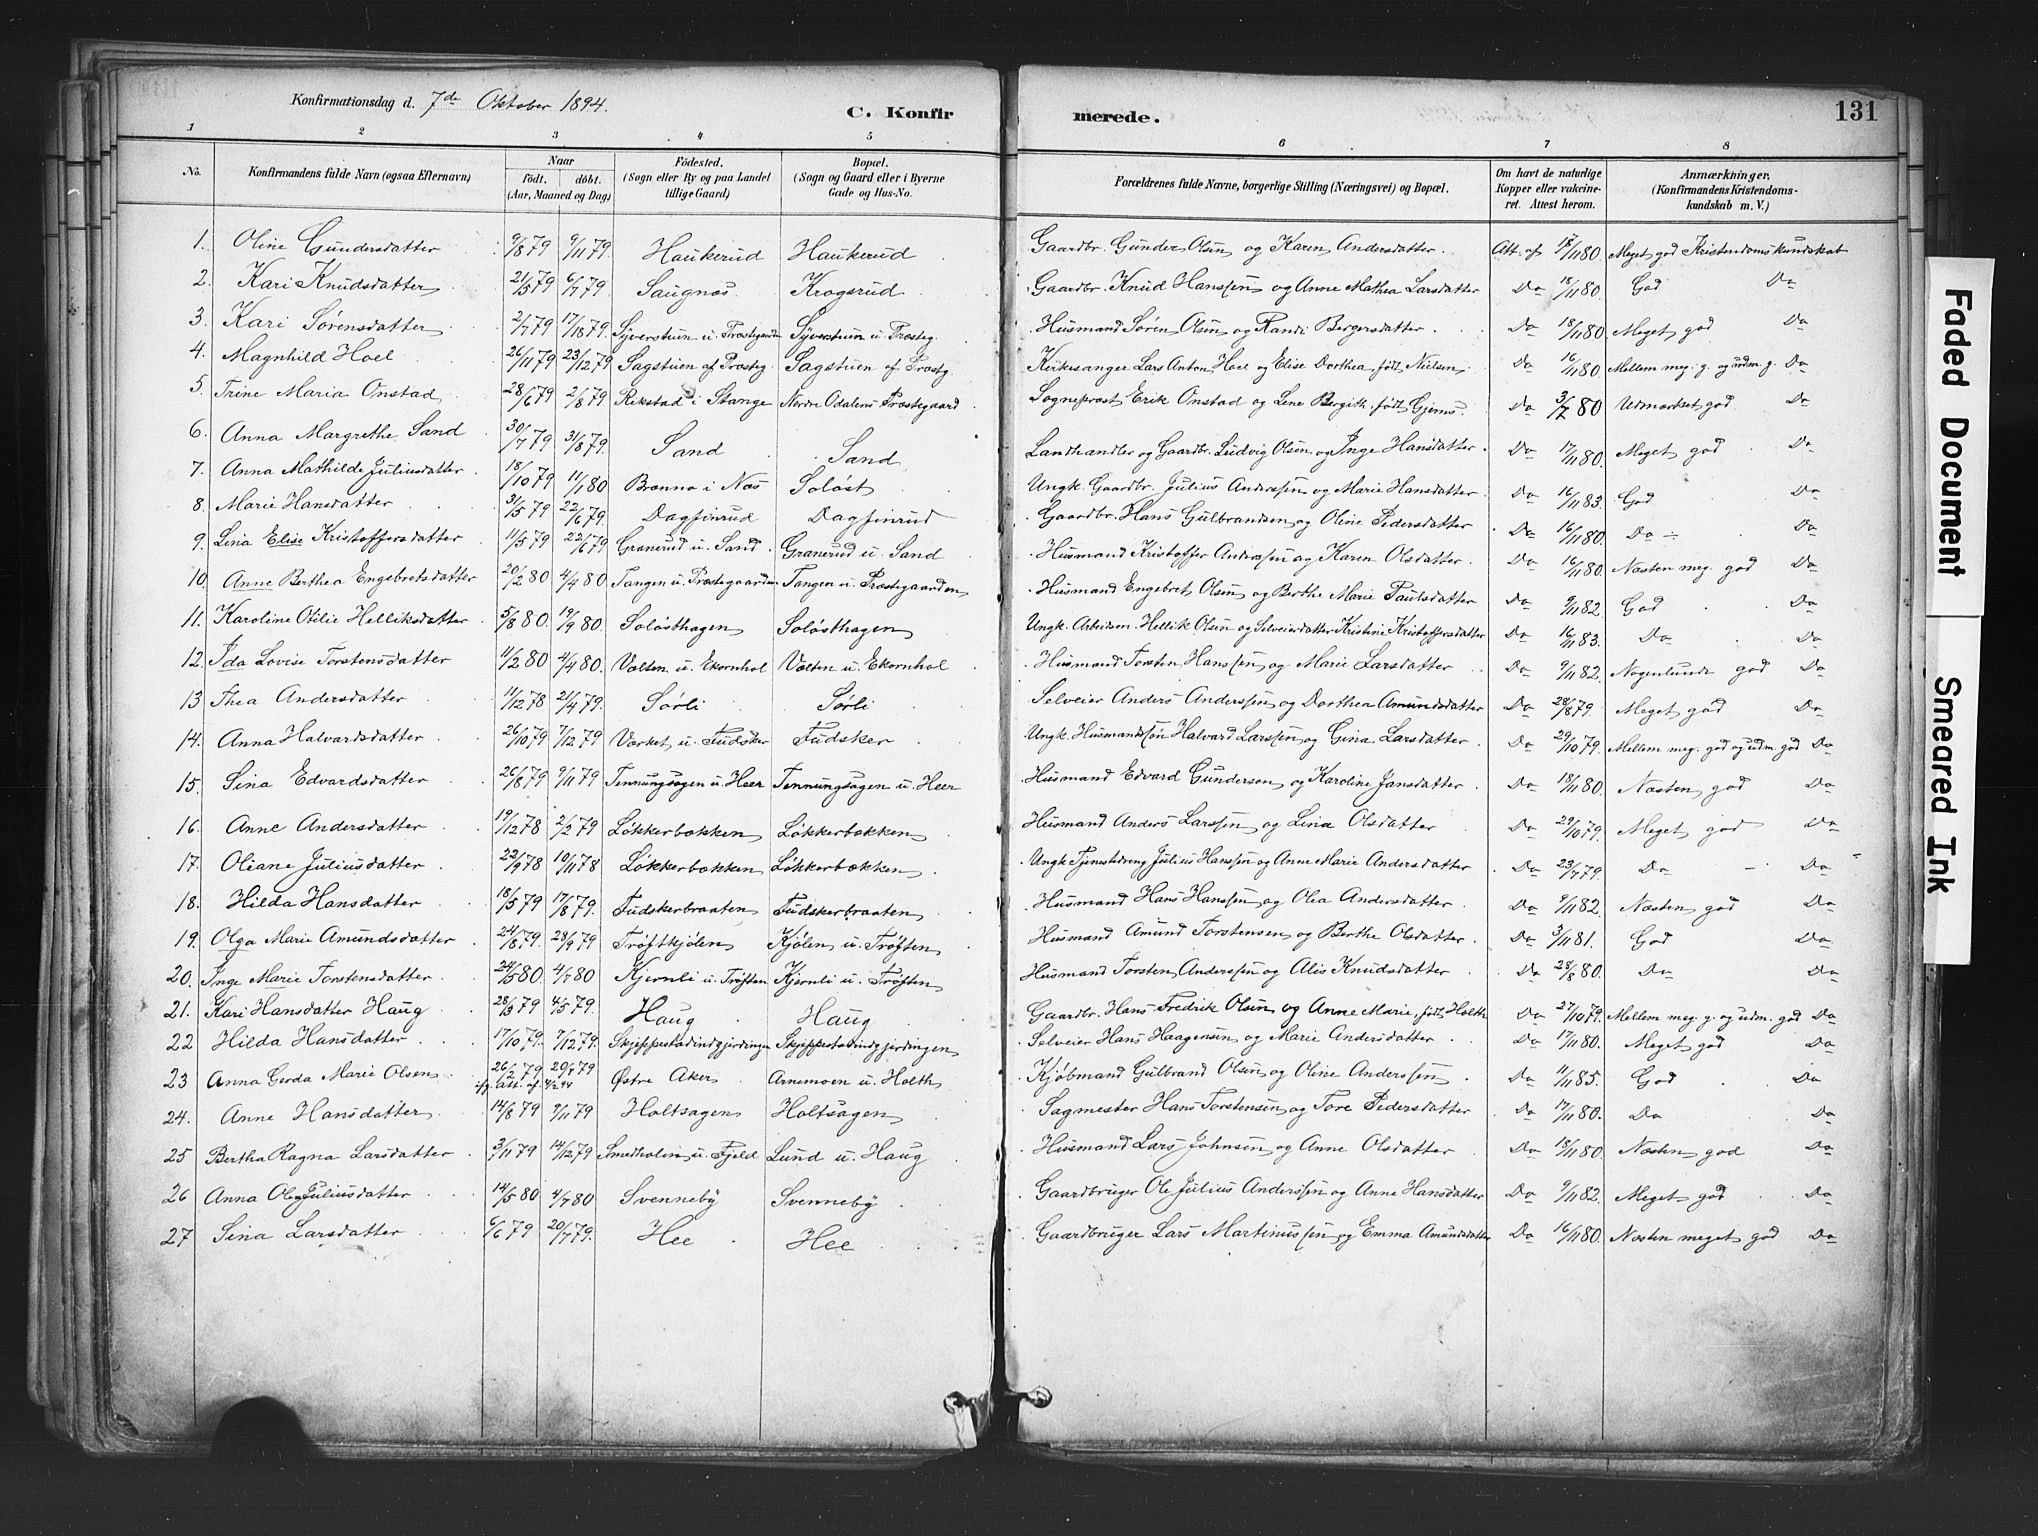 Konfirmationsdag d. 7de Oktober 1894.
C. Konfir merede. 131
1 2 3 4 5 6 7 8
No. Konfirmandens fulde Navn (ogsaa Efternavn) Naar födt. döbt. (Aar, Maaned og Dag) Födested. (Sogn eller By og paa Landet tillige Gaard) Bopæl. (Sogn og Gaard eller i Byerne Gade og Hus-No. Forældrenes fulde Navne, borgerlige Stilling (Næringsvei) og Bopæl. Om havt de naturlige Kopper eller vakcineret. Attest herom. Anmærkninger, (Konfirmandens Kristendomskundskab m. V.)
1. Oline Gundersdatter 9/8 79 9/11 79 Haukerud Haukerud Gaardbr. Gunder Olsen og Karen Andersdatter. Att. af 18/11 80. Meget god Kristendomskundskab
2. Kari Knudsdatter 21/5 79 6/7 79 Saugnæs Krogsrud Gaardbr. Knud Hanssen og Anne Mathea Larsdatter Do 18/11 80 God Do
3. Kari Sørensdatter 2/7 79 17/8 79 Syverstuen u. Præstegaarden Syverstuen u. Præsteg. Husmand Søren Olsen og Randi Bergersdatter. Do 18/11 80. Meget god Do
4. Magnhild Hoel 26/11 79 23/12 79 Sagstuen af Præsteg. Sagstuen af Præstg. Kirkesanger Lars Anton Hoel og Elise Dorthea, født Nielsen, Do 16/11 80. Mellem meg. g. og udm. g. Do
5. Trine Maria Onstad 28/6 79 2/8 79 Rekstad i Stange Nordre Odalens Præstegaard Sogneprest Erik Onstad og Lene Bergith, født Gjems. Do 3/7 80 Udmærket god Do
6. Anna Margrethe Sand 30/7 79 31/8 79. Sand Sand Landhandler og Gaardbr. Ludvig Olsen og Inge Hansdatter. Do 17/11 80. Meget god Do
7. Anna Mathilde Juliusdatter 18/10 79 11/1 80 Brænna i Næs Soløst Ungk. Gaardbr. Julius Anderssen og Marie Hansdatter. Do 16/11 83. God Do
8. Marie Hansdatter 31/5 79 22/6 79. Dagfinrud Dagfinrud Gaardbr. Hans Gulbrandsen og Oline Pedersdatter Do 16/11 80. Do Do
9. Lina Elise Kristoffersdatter 11/5 79 22/6 79 Granerud u. Sand Granerud u. Sand Husmand Kristoffer Anderssen og Karen Olsdatter. Do 16/11 80. Næsten meg. god Do
10. Anne Berthea Engebretsdatter 20/2 80 4/4 80 Tangen u. Præstegaarden Tangen u. Præstegaarden Husmand Engebret Olsen og Berthe Marie Paulsdatter Do 9/11 82. God Do
11. Karoline Otilie Helliksdatter 5/8 80 19/9 80. Soløsthagen Soløsthagen Ungk. Arbeidsm. Hellik Olsen og Selveierdatter Kristine Kristoffersdatter Do 16/11 83. Do Do
12. Ida Lovise Torstensdatter 11/2 80 4/4 80. Vælten u. Ekornhol Vælten u. Ekornhol Husmand Torsten Hanssen og Marie Larsdatter Do 9/11 82. Nogenlunde god Do
13 Thea Andersdatter 11/12 78 21/4 79. Sørli Sørli Selveier Anders Anderssen og Dorthea Amundsdatter Do 28/8 79. Meget god Do
14. Anna Halvardsdatter 26/10 79 7/12 79 Værket u. Fudsker Fudsker Ungk. Husmandssøn Halvard Larssen og Gina Larsdatter. Do 29/10 79. Mellem meg. god og udm. god Do
15. Sina Edvardsdatter 26/8 79 9/11 79 Tennungsagen u. Heer Tennungsagen u. Heer Husmand Edvard Gundersen og Karoline Jansdatter Do 18/11 80. Næsten god Do
16. Anne Andersdatter 19/12 78 2/2 79 Løkkerbækken Løkkerbækken Husmand Anders Larssen og Lina Olsdatter Do 29/10 79. Meget god Do
17. Oliane Juliusdatter 22/9 78 10/11 78 Løkkerbækken Løkkerbækken Ungk Tjenestedreng Julius Hanssen og Anne Marie Andersdatter Do 23/7 79. Do Do
18. Hilda Hansdatter 18/5 79 17/8 79. Fudskerbraaten Fudskerbraaten Husmand Hans Hanssen og Olea Andersdatter. Do 9/11 82. Næsten god Do
19. Olga Marie Amundsdatter 24/8 79. 28/9 79 Trøftkjølen Kjølen u. Trøften Husmand Amund Torstensen og Berthe Olsdatter. Do 3/11 81. God Do
20. Inge Marie Torstensdatter 24/5 80 4/7 80 Kjernli u. Trøften Kjernli u. Trøften Husmand Torsten Anderssen og Alis Knudsdatter Do 28/8 80. Do Do
21. Kari Hansdatter Haug 28/3 79 4/5 79. Haug Haug Gaardbr. Hans Fredrik Olsen og Anne Marie, født Holth Do 27/10 79. Mellem meg. g. og udm. god Do
22 Hilda Hansdatter 17/10 79. 7/12 79. Skjeppestadindgjerdingen Skjeppestadindgjerdingen Selveier Hans Haagensen og Marie Andersdatter Do 17/11 80. Meget god Do
23 Anna Gerda Marie Olsen 26/2 79 20/4 79 Østre Aker Arnemoen u. Holth Kjøbmand Gulbrand Olsen og Oline Anderssen Do 11/11 85. God Do
ifg. att. af 4/2 94
24. Anne Hansdatter 14/8 79 9/11 79 Holtsagen Holtsagen Sagmester Hans Torstensen og Tore Pedersdatter Do 17/11 80. Do Do
25 Bertha Ragna Larsdatter 3/11 79 14/12 79 Smedholen u. Fjeld Lund u. Haug Husmand Lars Johnsen og Anne Olsdatter Do 18/11 80 Næsten god Do
26 Anna Oleg Juliusdatter 14/5 80 4/7 80 Svenneby Svenneby Gaardbruger Ole Julius Anderssen og Anne Hansdatter Do 9/11 82. Meget god Do
27 Sina Larsdatter 6/6 79 20/7 79. Hee Hee Gaardbruger Lars Martinussen og Emma Amundsdatter Do 16/11 80. Næsten meget god Do
Faded Document
Smeared Ink